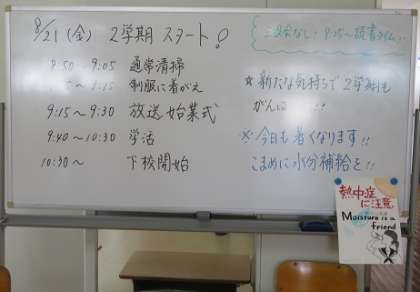 8/21(金) 2学期 スタート!
朝会なし! 8:25〜読書タイム
8:50〜9:05 通常清掃
9:15 制服に着がえ
9:15〜9:30 放送始業式
9:40〜10:30 学活
10:30〜 下校開始
☆新たな気持ちで2学期も
がんば !!
※今日も暑くなります!!
こまめに水分補給を!!
熱中症
に注意
Moisture is a
friend